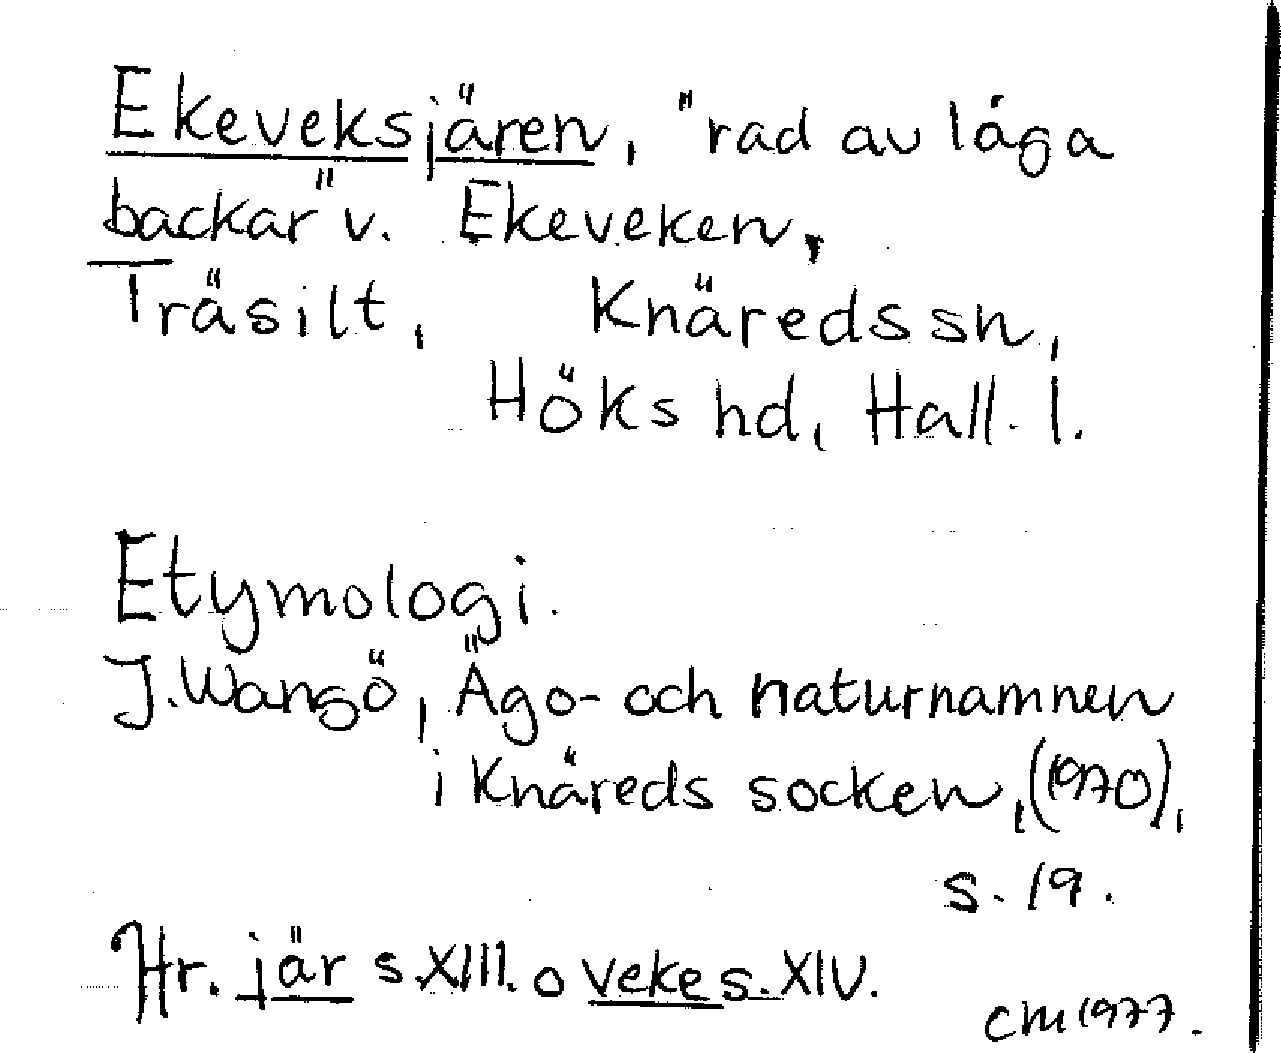 Ekeveksjären, "rad av låga
backar" v. Ekeveken,
Träsilt, Knäreds sn,
Höks hd, Hall. l.
Etymologi.
J. Wangö, Ägo- och naturnamnen
i Knäreds socken, (1970),
s. 19.
Hr. jär s. XIII. o veke s. XIV.
CM 1977.